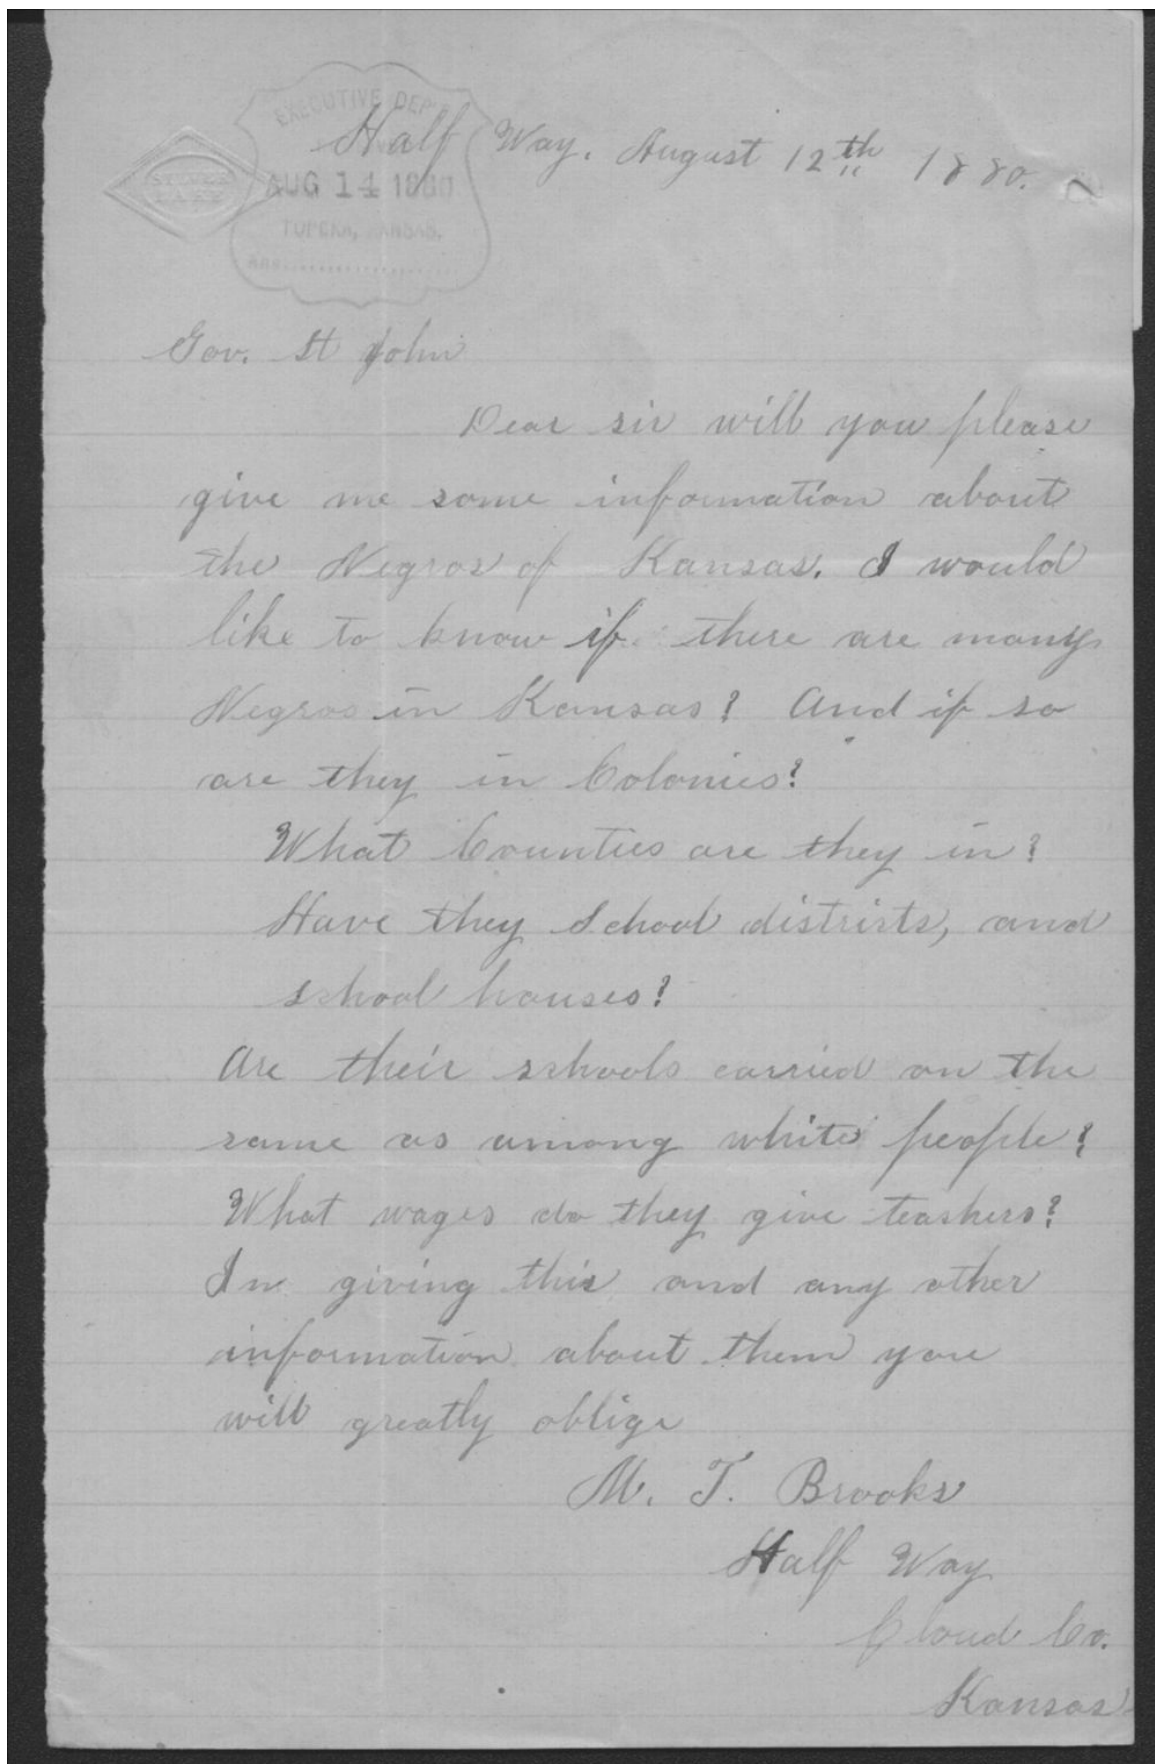 EXECUTIVE DEP'T
Half Way. August 12th 1880.
AUG 14 1880
TOPEKA, KANSAS.
Gov. St John
Dear sir will you please
give me some information about
the Negros of Kansas. I would
like to know if there are many
Negros in Kansas? And if so
are they in Colonies?
What Counties are they in?
Have they School districts, and
school houses?
Are their schools carried on the
same as among white people?
What wages do they give teachers?
In giving this and any other
information about them you
will greatly oblige
M. T. Brooks
Half Way
Cloud Co.
Kansas